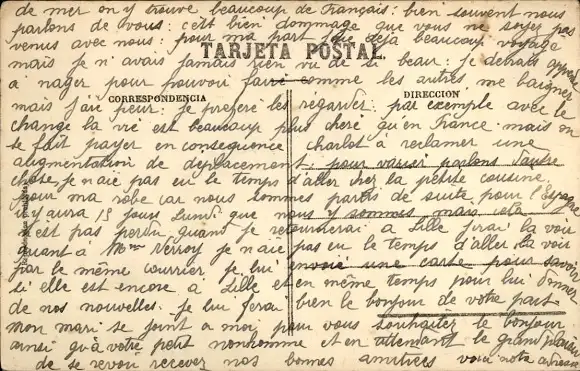 de mer on y trouve beaucoup de Français: bien souvent nous
parlons de vous: c'est bien dommage que vous ne soyez pas
venus avec nous: pour ma part j'ai déjà beaucoup voyagé
TARJETA POSTAL
mais je n'avais jamais rien vu de si beau: je devrais apprendre
à nager pour pouvoir faire comme les autres me baigner
CORRESPONDENCIA
DIRECCION
mais j'ai peur: je préfère les regarder: par exemple avec le
change la vie est beaucoup plus chère qu'en France mais on
le fait payer en conséquence Charlot à réclamer une
augmentation de déplacement: pour varier parlons d'autre
chose je n'aie pas eu le temps d'aller chez la petite cousine
pour ma robe car nous sommes partis de suite pour l'Espagne
il y aura 15 jours Lundi que nous y sommes mais cela
n'est pas perdu quand je retournerai à Lille j'irai la voir
quant à Mme Verroy je n'aie pas eu le temps d'aller la voir
par le même courrier je lui envoie une carte pour savoir
si elle est encore à Lille et en même temps pour lui donner
de nos nouvelles. je lui ferai bien le bonjour de votre part
mon mari se joint à moi pour vous souhaiter le bonjour
ainsi qu'à votre petit et en attendant le grand plaisir
de se revoir recevez nos bonnes amitiées voici notre adresse